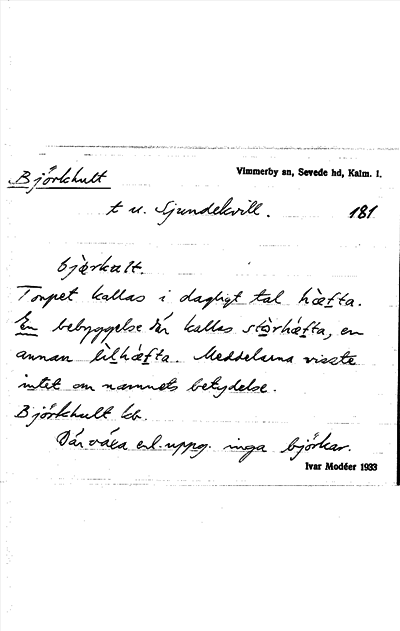 Vimmerby sn, Sevede hd, Kalm. l.
Björkhult
t u. Sjundekvill. 181
bjærkult.
Torpet kallas i dagligt tal hæfta.
En bebyggelse där kallas stòrhæfta, en
annan lìlhæfta. Meddelarna visste
intet om namnets betydelse.
Björkhult kb.
Där växa enl. uppg. inga björkar.
Ivar Modéer 1933